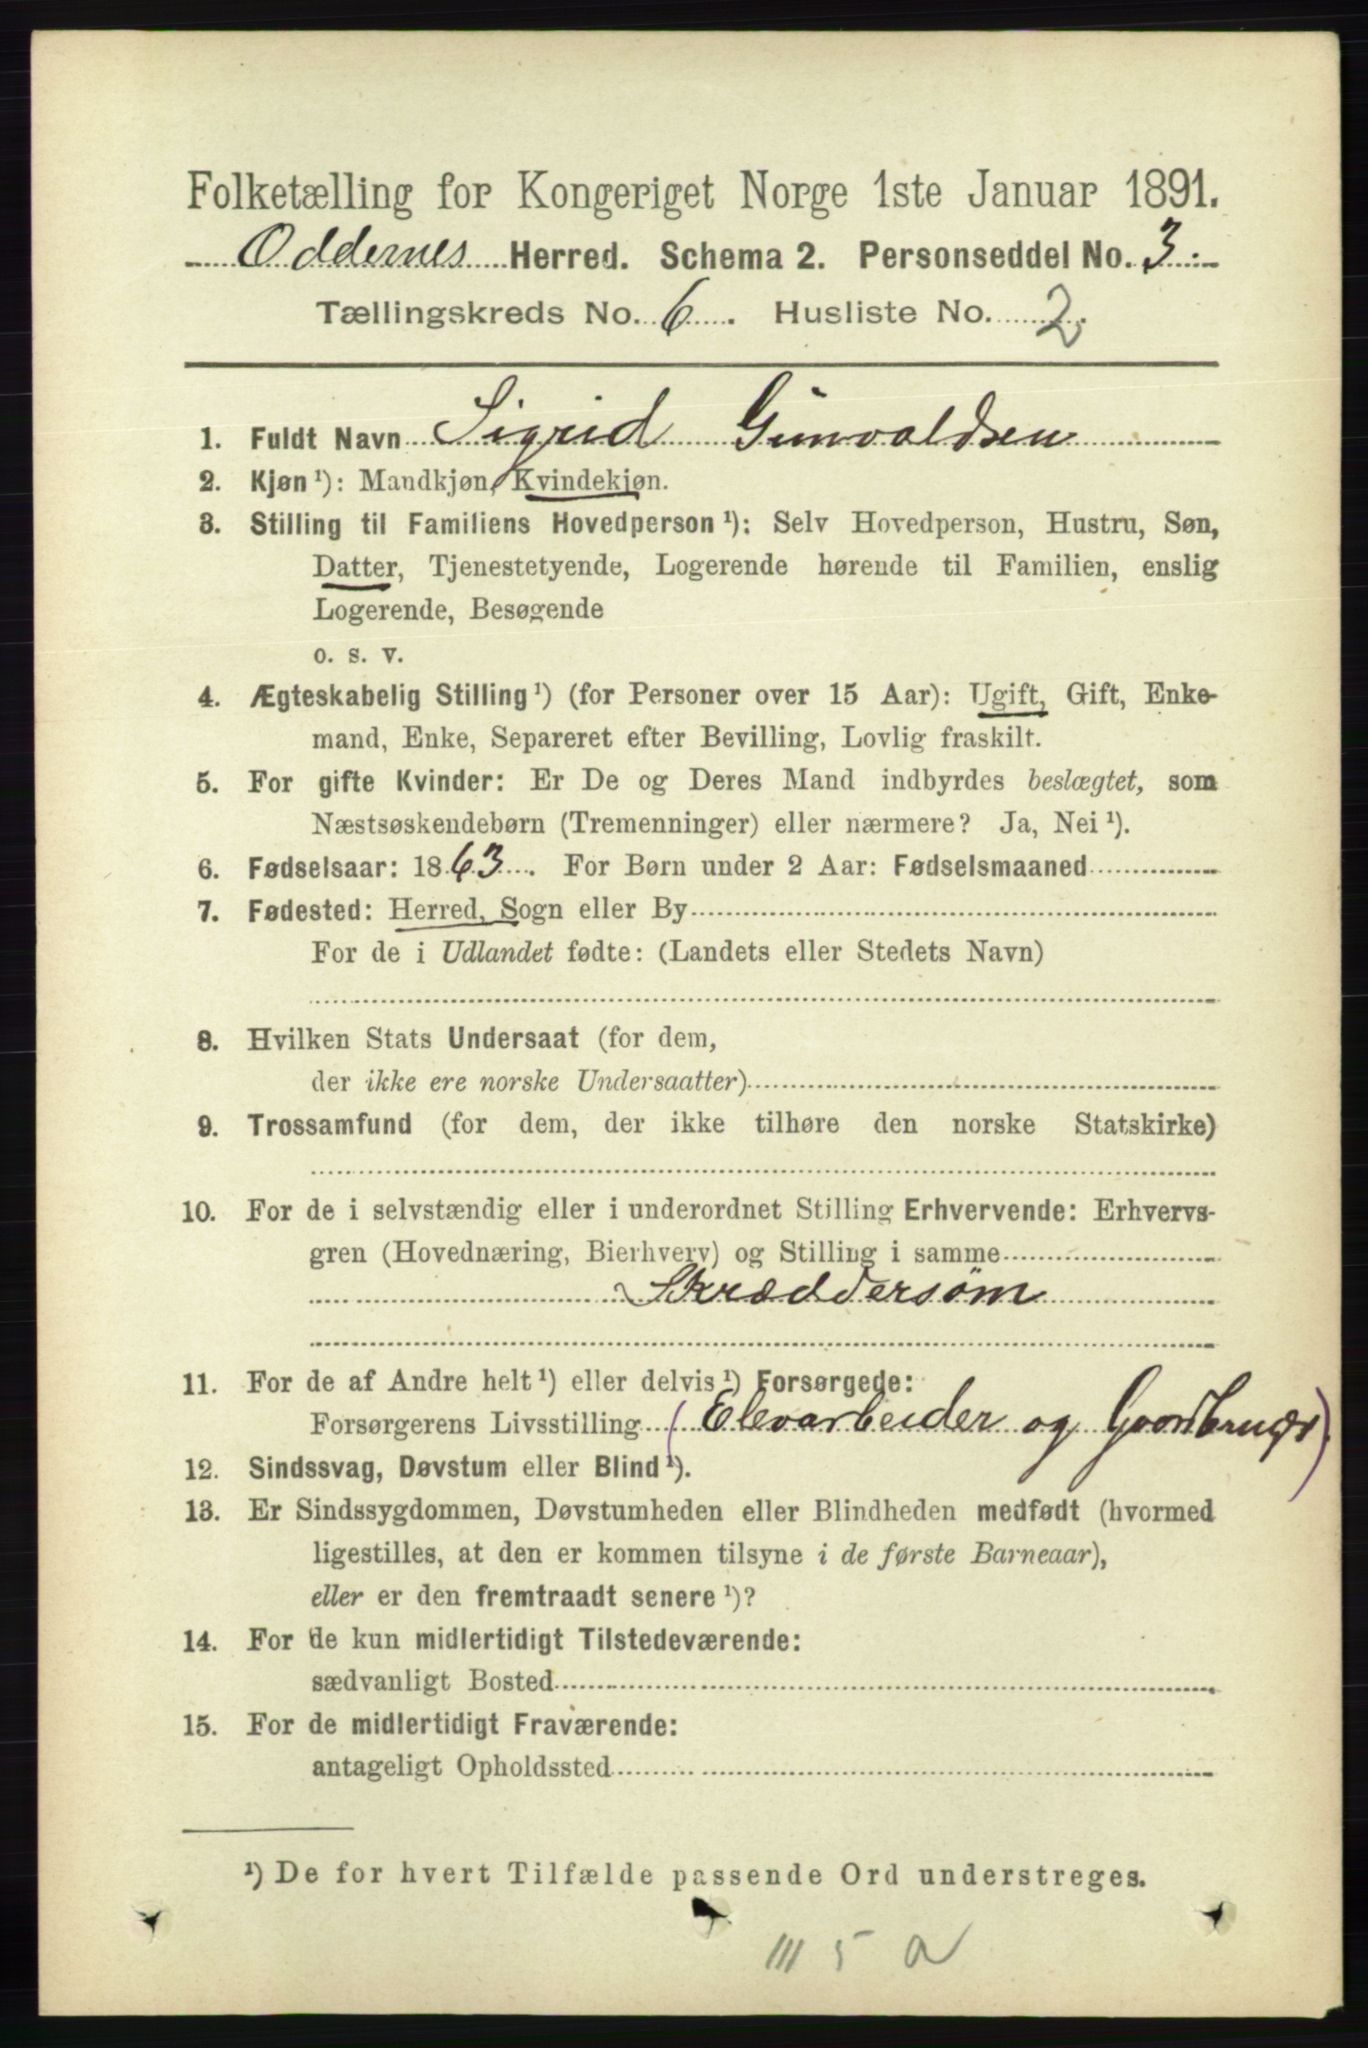 Folketælling for Kongeriget Norge 1ste Januar 1891.
Oddernes Herred. Schema 2. Personseddel No. 3.
Tællingskreds No. 6. Husliste No. 2.
1. Fuldt Navn Sigrid Gunvaldsen
2. Kjøn¹): Mandkjøn, Kvindekjøn.
3. Stilling til Familiens Hovedperson¹): Selv Hovedperson, Hustru, Søn,
Datter, Tjenestetyende, Logerende hørende til Familien, enslig
Logerende, Besøgende
o. s. v.
4. Ægteskabelig Stilling¹) (for Personer over 15 Aar): Ugift, Gift, Enke-
mand, Enke, Separeret efter Bevilling, Lovlig fraskilt.
5. For gifte Kvinder: Er De og Deres Mand indbyrdes beslægtet, som
Næstsøskendebørn (Tremenninger) eller nærmere? Ja, Nei¹).
6. Fødselsaar: 1863. For Børn under 2 Aar: Fødselsmaaned
7. Fødested: Herred, Sogn eller By
For de i Udlandet fødte: (Landets eller Stedets Navn)
8. Hvilken Stats Undersaat (for dem,
der ikke ere norske Undersaatter)
9. Trossamfund (for dem, der ikke tilhøre den norske Statskirke)
10. For de i selvstændig eller i underordnet Stilling Erhvervende: Erhvervs-
gren (Hovednæring, Bierhverv) og Stilling i samme
Skræddersøm
11. For de af Andre helt¹) eller delvis¹) Forsørgede:
Forsørgerens Livsstilling (Elevarbeider og Gaardbruger)
12. Sindssvag, Døvstum eller Blind¹).
13. Er Sindssygdommen, Døvstumheden eller Blindheden medfødt (hvormed
ligestilles, at den er kommen tilsyne i de første Barneaar),
eller er den fremtraadt senere¹)?
14. For de kun midlertidigt Tilstedeværende:
sædvanligt Bosted
15. For de midlertidigt Fraværende:
antageligt Opholdssted
¹) De for hvert Tilfælde passende Ord understreges.
III 5 a